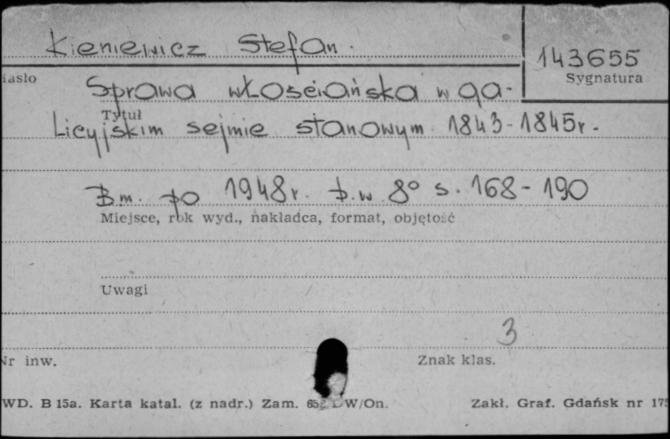 Kieniewicz Stefan.
143655
iasło
Sygnatura
Sprawa włościańska w ga-
Tytuł
licyjskim sejmie stanowym 1843-1845r.
B.m. po 1948r. b.w 8° s. 168-190
Miejsce, rok wyd., nakładca, format, objętość
Uwagi
3
Nr inw.
Znak klas.
WD. B 15a. Karta katal. (z nadr.) Zam. W/On.
Zakł. Graf. Gdańsk nr 175